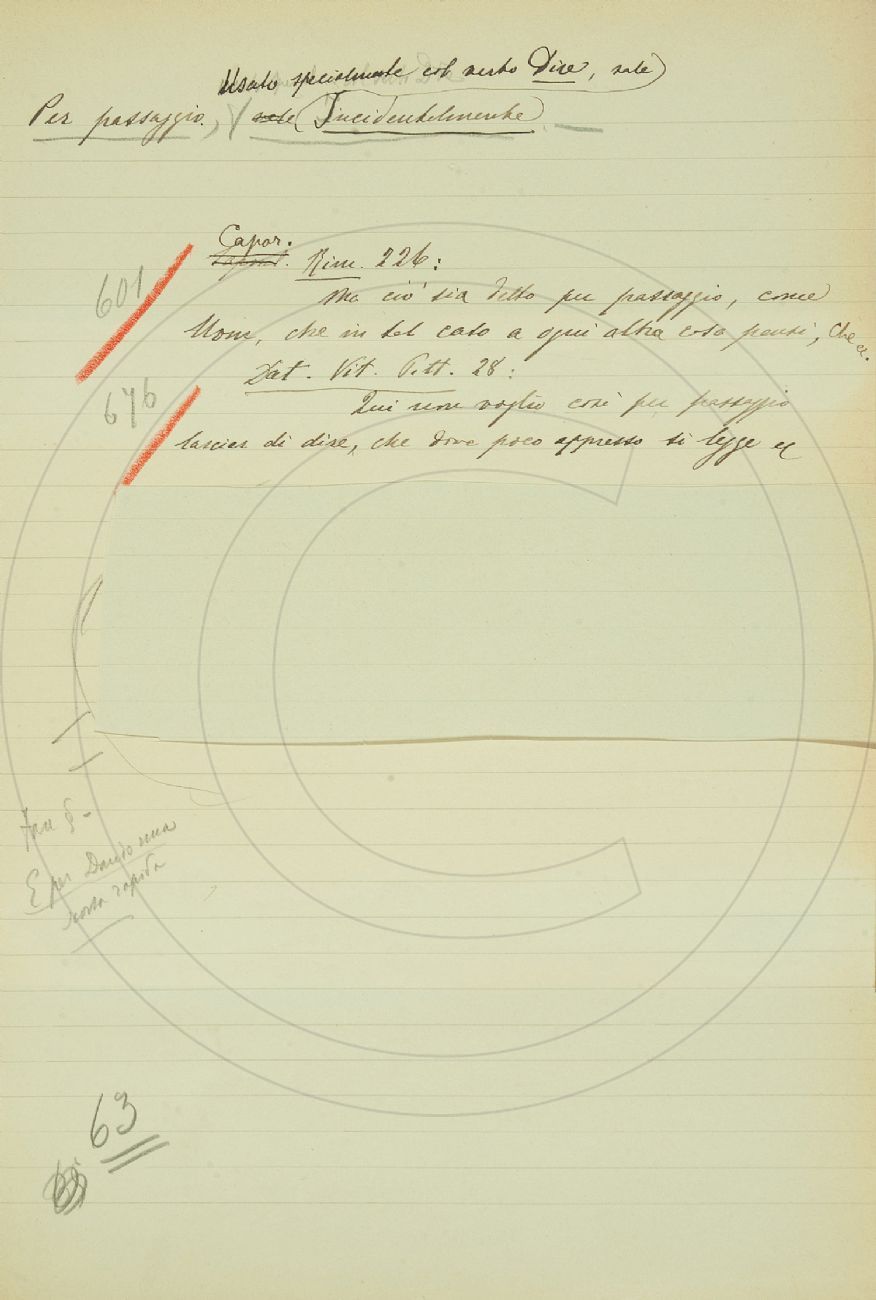 Usato specialmente col verbo Dire, vale
Per passaggio, vale Incidentelmente
Capor.
Rim. 226:
601
Ma ciò sia detto per passaggio, come
Uom, che in tal caso a ogni altra cosa pensi, Che ec.
Dat. Vit. Pitt. 28:
676
Qui non voglio così per passaggio
lasciar di dire, che dove poco appresso si legge ec
Fare §-
E per Dando una
corsa rapida
63